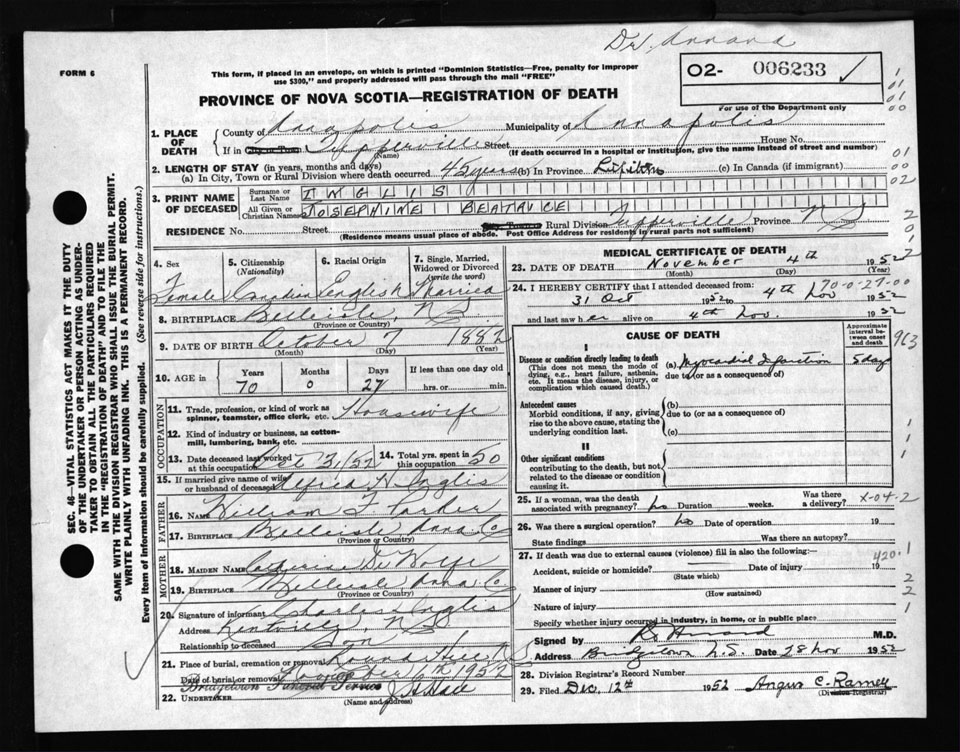 Dr. Annand
FORM 6
This form, if placed in an envelope, on which is printed "Dominion Statistics—Free, penalty for improper
use $300," and properly addressed will pass through the mail "FREE"
O2- 006233
PROVINCE OF NOVA SCOTIA—REGISTRATION OF DEATH
For use of the Department only
1. PLACE OF DEATH
County of Annapolis Municipality of Annapolis
If in City or Town Tupperville Street House No.
(Name) (If death occurred in a hospital or institution, give the name instead of street and number)
2. LENGTH OF STAY (in years, months and days)
(a) In City, Town or Rural Division where death occurred 45 years (b) In Province Lifetime (c) In Canada (if immigrant)
3. PRINT NAME OF DECEASED
Surname or Last Name INGLIS
All Given or Christian Names JOSEPHINE BEATRICE
RESIDENCE No. Street Rural Division Tupperville Province NS
(Residence means usual place of abode. Post Office Address for residents in rural parts not sufficient)
4. Sex
Female
5. Citizenship (Nationality)
Canadian
6. Racial Origin
English
7. Single, Married, Widowed or Divorced (write the word)
Married
8. BIRTHPLACE Belleisle, NS
(Province or Country)
9. DATE OF BIRTH October 7 1882
(Month) (Day) (Year)
10. AGE in Years Months Days If less than one day old
70 0 27 hrs. or min.
OCCUPATION
11. Trade, profession, or kind of work as spinner, teamster, office clerk, etc. Housewife
12. Kind of industry or business, as cotton-mill, lumbering, bank, etc.
13. Date deceased last worked at this occupation Oct 31/52
14. Total yrs. spent in this occupation 50
15. If married give name of wife or husband of deceased H Inglis
FATHER
16. Name William F Parker
17. Birthplace Belleisle Anna. Co
(Province or Country)
MOTHER
18. MAIDEN NAME Catherine DeWolfe
19. BIRTHPLACE Belleisle Anna. Co.
(Province or Country)
20. Signature of informant Charles Inglis
Address Kentville, N.S.
Relationship to deceased Son
21. Place of burial, cremation or removal Round Hill NS
Date of burial or removal November 6th 1952
Bridgetown Funeral Service
22. UNDERTAKER
(Name and address)
MEDICAL CERTIFICATE OF DEATH
23. DATE OF DEATH November 4th 1952
(Month) (Day) (Year)
24. I HEREBY CERTIFY that I attended deceased from:
31 Oct 1952 to 4th Nov 1952
and last saw her alive on 4th Nov. 1952
70-0-27-00
CAUSE OF DEATH
Approximate interval between onset and death
I
Disease or condition directly leading to death
(This does not mean the mode of dying, e.g., heart failure, asthenia, etc. It means the disease, injury, or complication which caused death.)
(a) Myocardial Infarction 5 days
due to (or as a consequence of)
Antecedent causes
Morbid conditions, if any, giving rise to the above cause, stating the underlying condition last.
(b)
due to (or as a consequence of)
(c)
II
Other significant conditions
contributing to the death, but not related to the disease or condition causing it.
25. If a woman, was the death associated with pregnancy? No Duration weeks. Was there a delivery?
X-04-2
26. Was there a surgical operation? No Date of operation 19
State findings Was there an autopsy?
27. If death was due to external causes (violence) fill in also the following:—
Accident, suicide or homicide? Date of injury 19
(State which)
420.1
Manner of injury
(How sustained)
Nature of injury
Specify whether injury occurred in industry, in home, or in public place
Signed by R. Annand M.D.
Address Bridgetown N.S. Date 28 Nov 1952
28. Division Registrar's Record Number
29. Filed Dec. 12th 1952 Angus C. Ramey
(Division Registrar)
SEC. 46—VITAL STATISTICS ACT MAKES IT THE DUTY
OF THE UNDERTAKER OR PERSON ACTING AS UNDER-
TAKER TO OBTAIN ALL THE PARTICULARS REQUIRED
IN THE "REGISTRATION OF DEATH" AND TO FILE THE
SAME WITH THE DIVISION REGISTRAR WHO SHALL ISSUE THE BURIAL PERMIT.
WRITE PLAINLY WITH UNFADING INK. THIS IS A PERMANENT RECORD.
Every item of information should be carefully supplied. (See reverse side for instructions.)
963